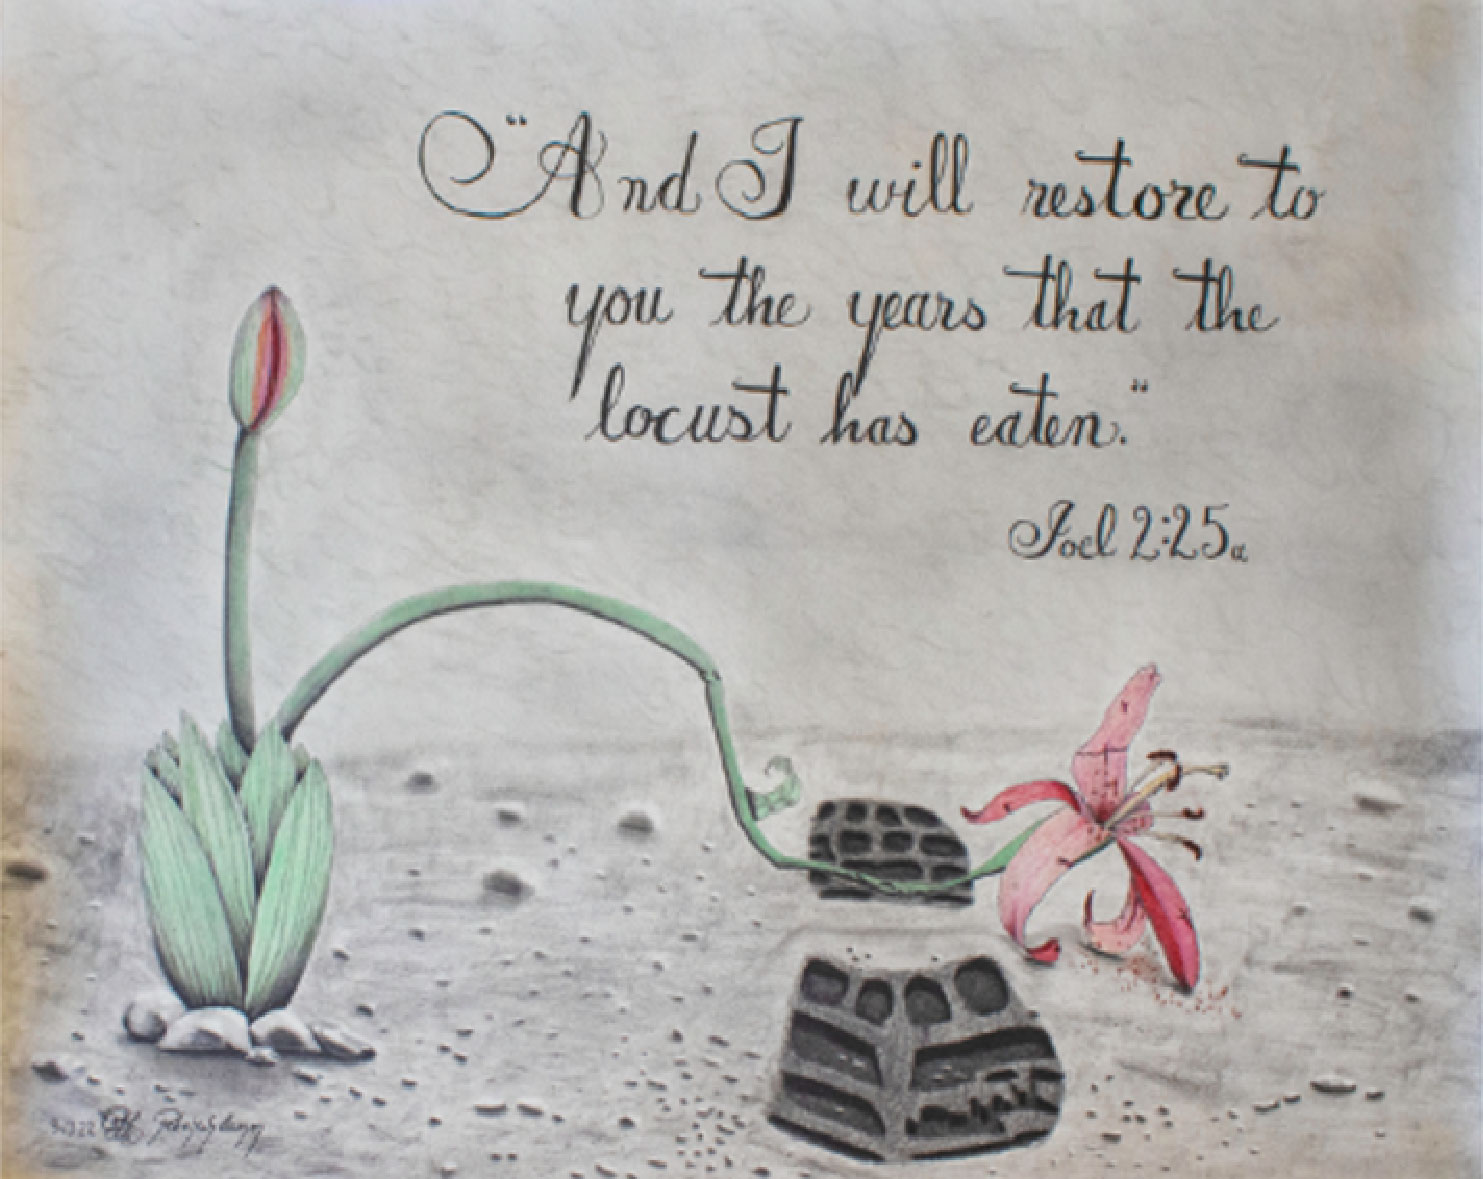 "And I will restore to
you the years that the
locust has eaten."
Joel 2:25a